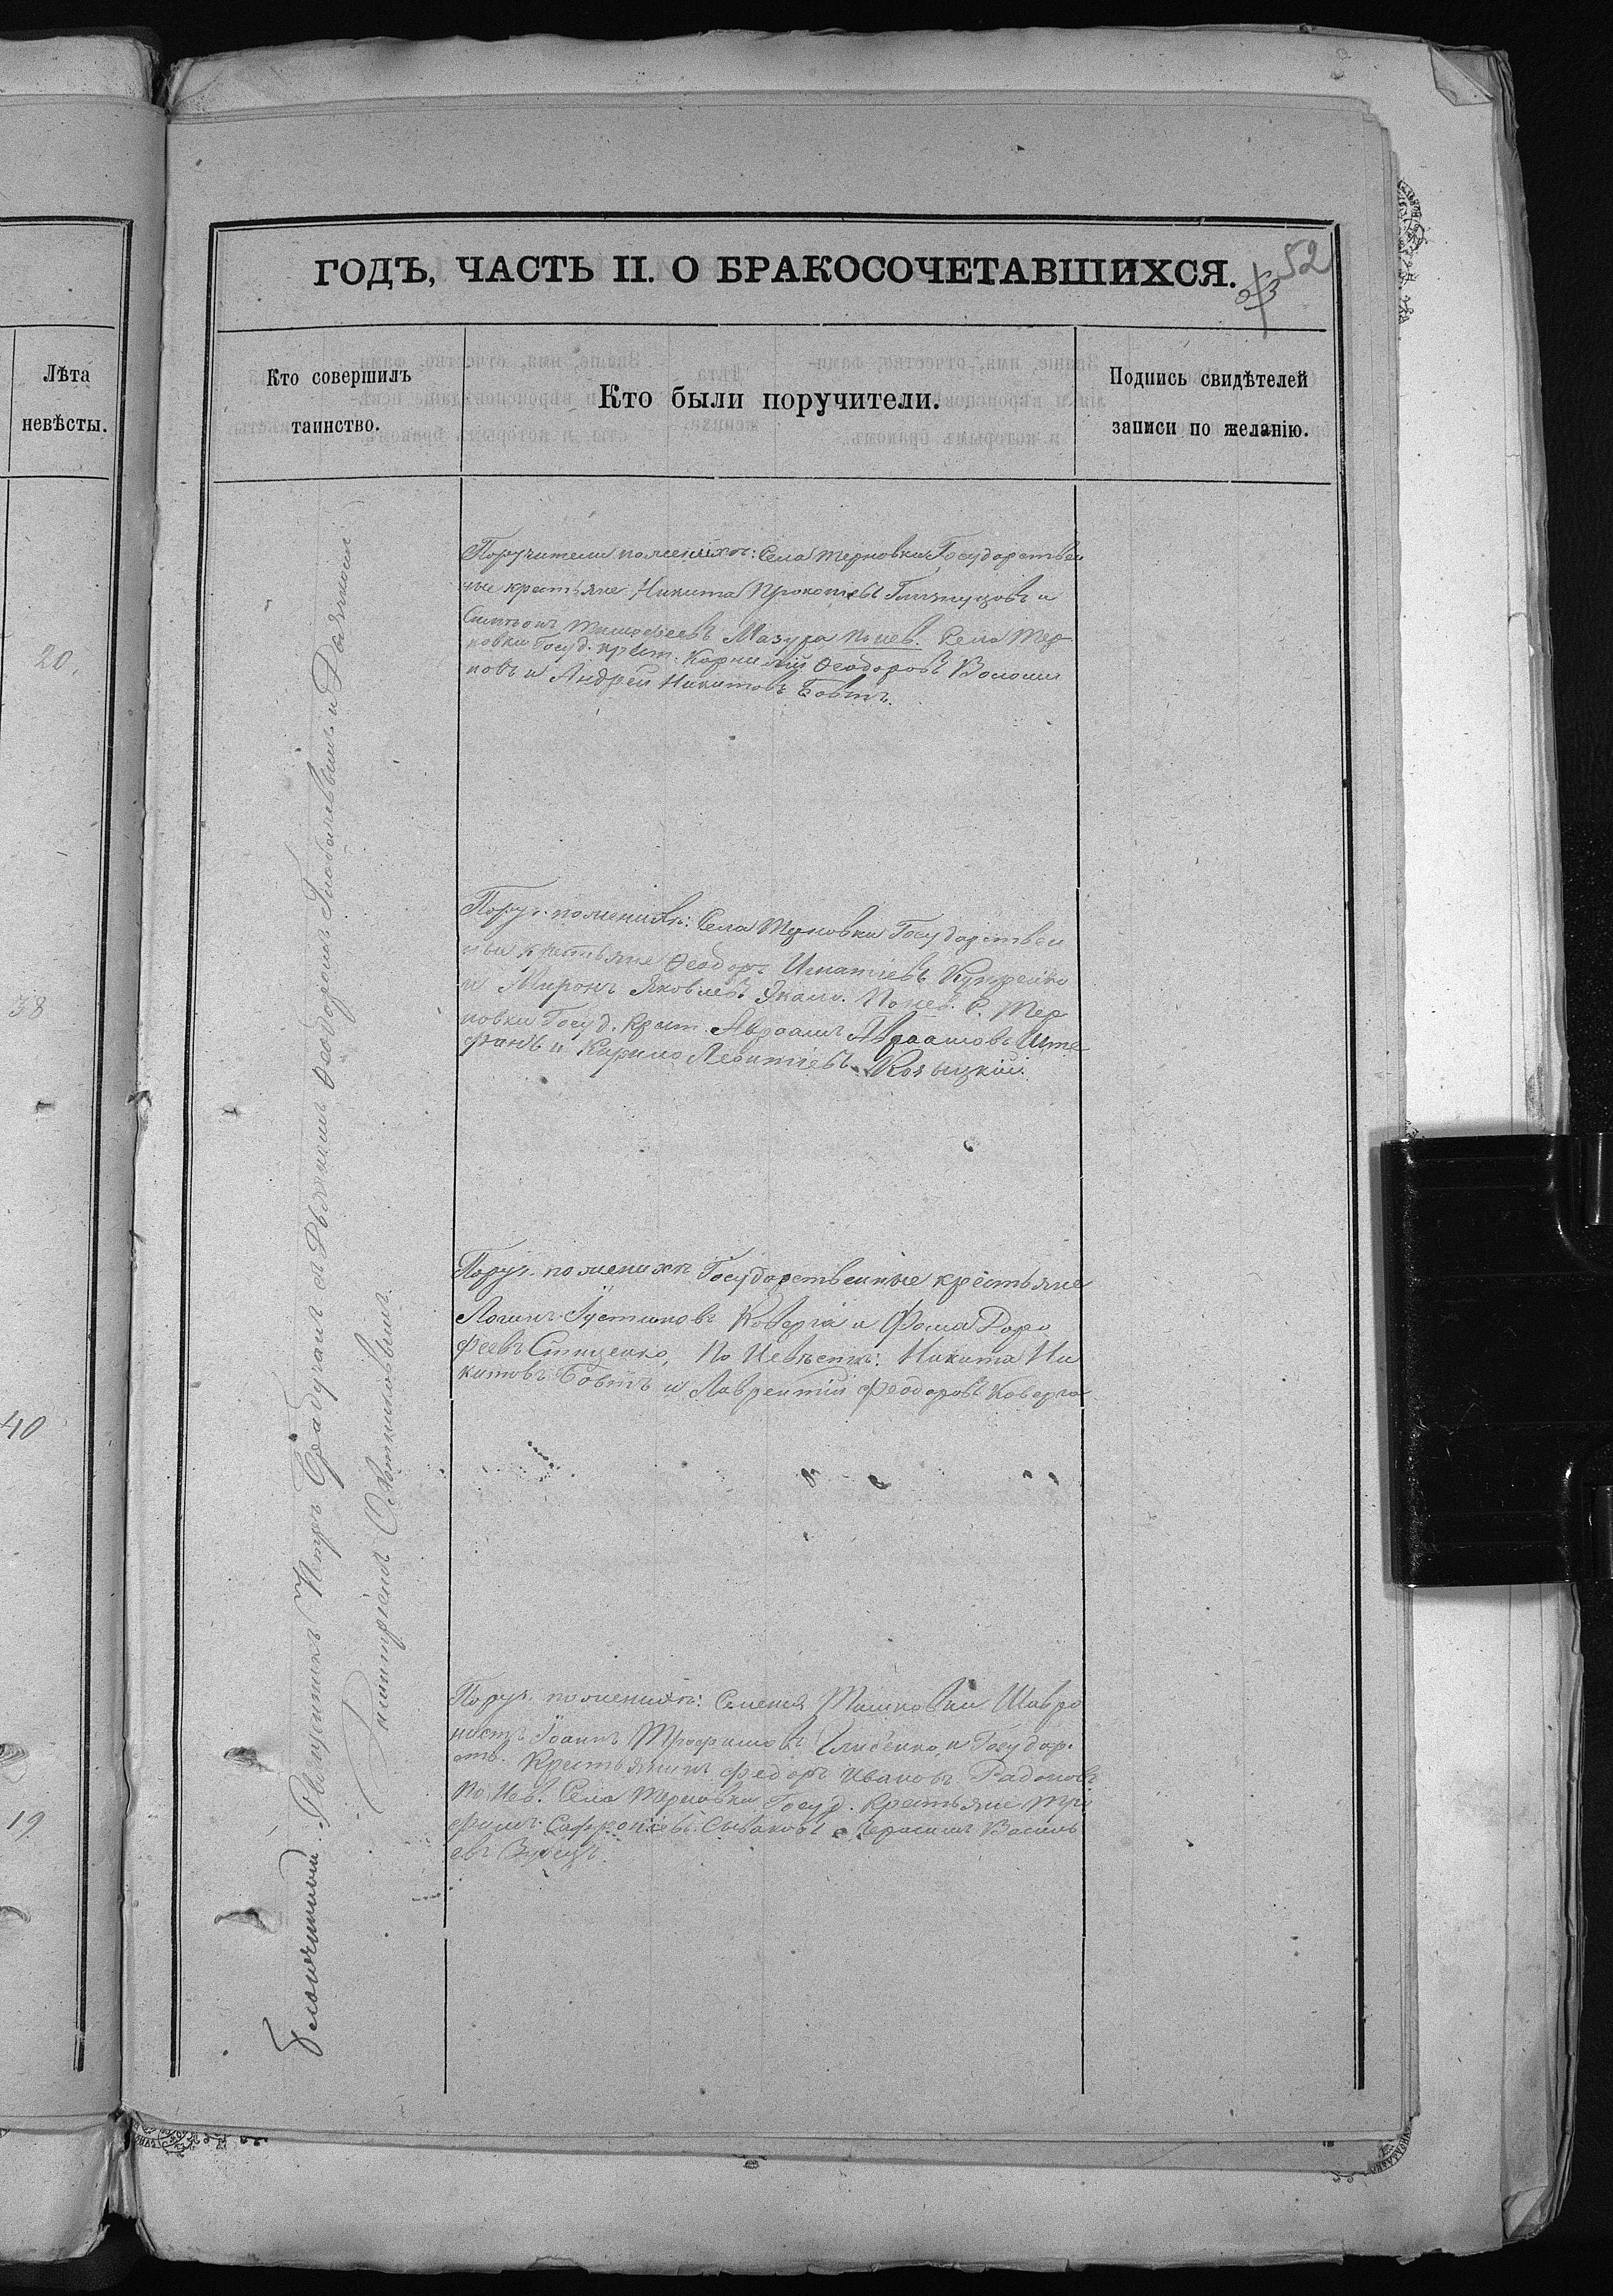 ГОДЪ, ЧАСТЬ II. О БРАКОСОЧЕТАВШИХСЯ.
52
53
Лѣта
невѣсты.
Кто совершилъ
таинство.
Кто были поручители.
Подпись свидѣтелей
записи по желанію.
20.
38
40
19
Благочинный Священникъ Петръ съ Ѳеодоромъ и
Димитріемъ
Поручители по женихѣ: Села Терновки Государствен
ные крестьяне Никита Прокопіевъ и
Симеонъ Тимофеевъ Мазура по нев. Села Тер
новки Госуд. крест. Корнилій Ѳеодоровъ Волоши
новъ и Андрей Никитовъ Бовтъ.
Поруч. по женихѣ: Села Терновки Государствен
ные крестьяне Ѳеодоръ Игнатіевъ Купрейко
и Миронъ Яковлевъ По нев. С. Тер
новки Госуд. крест. Авраамъ Авраамовъ Ште
фанъ и Кирило Леонтіевъ
Поруч. по женихѣ Государственные крестьяне
Логинъ Іустиновъ Коверга и Фома Доро
феевъ Стаценко, По Невѣстѣ: Никита Ни
китовъ Бовтъ и Лаврентій Феодоровъ Коверга
Поруч. по женихѣ:
Іоаннъ Трофимовъ и Государ.
ств. Крестьянинъ Федоръ Ивановъ Радоновъ
По Нев. Села Терновки Госуд. Крестьяне Тро
фимъ Софроніевъ Герасимъ Василь
евъ